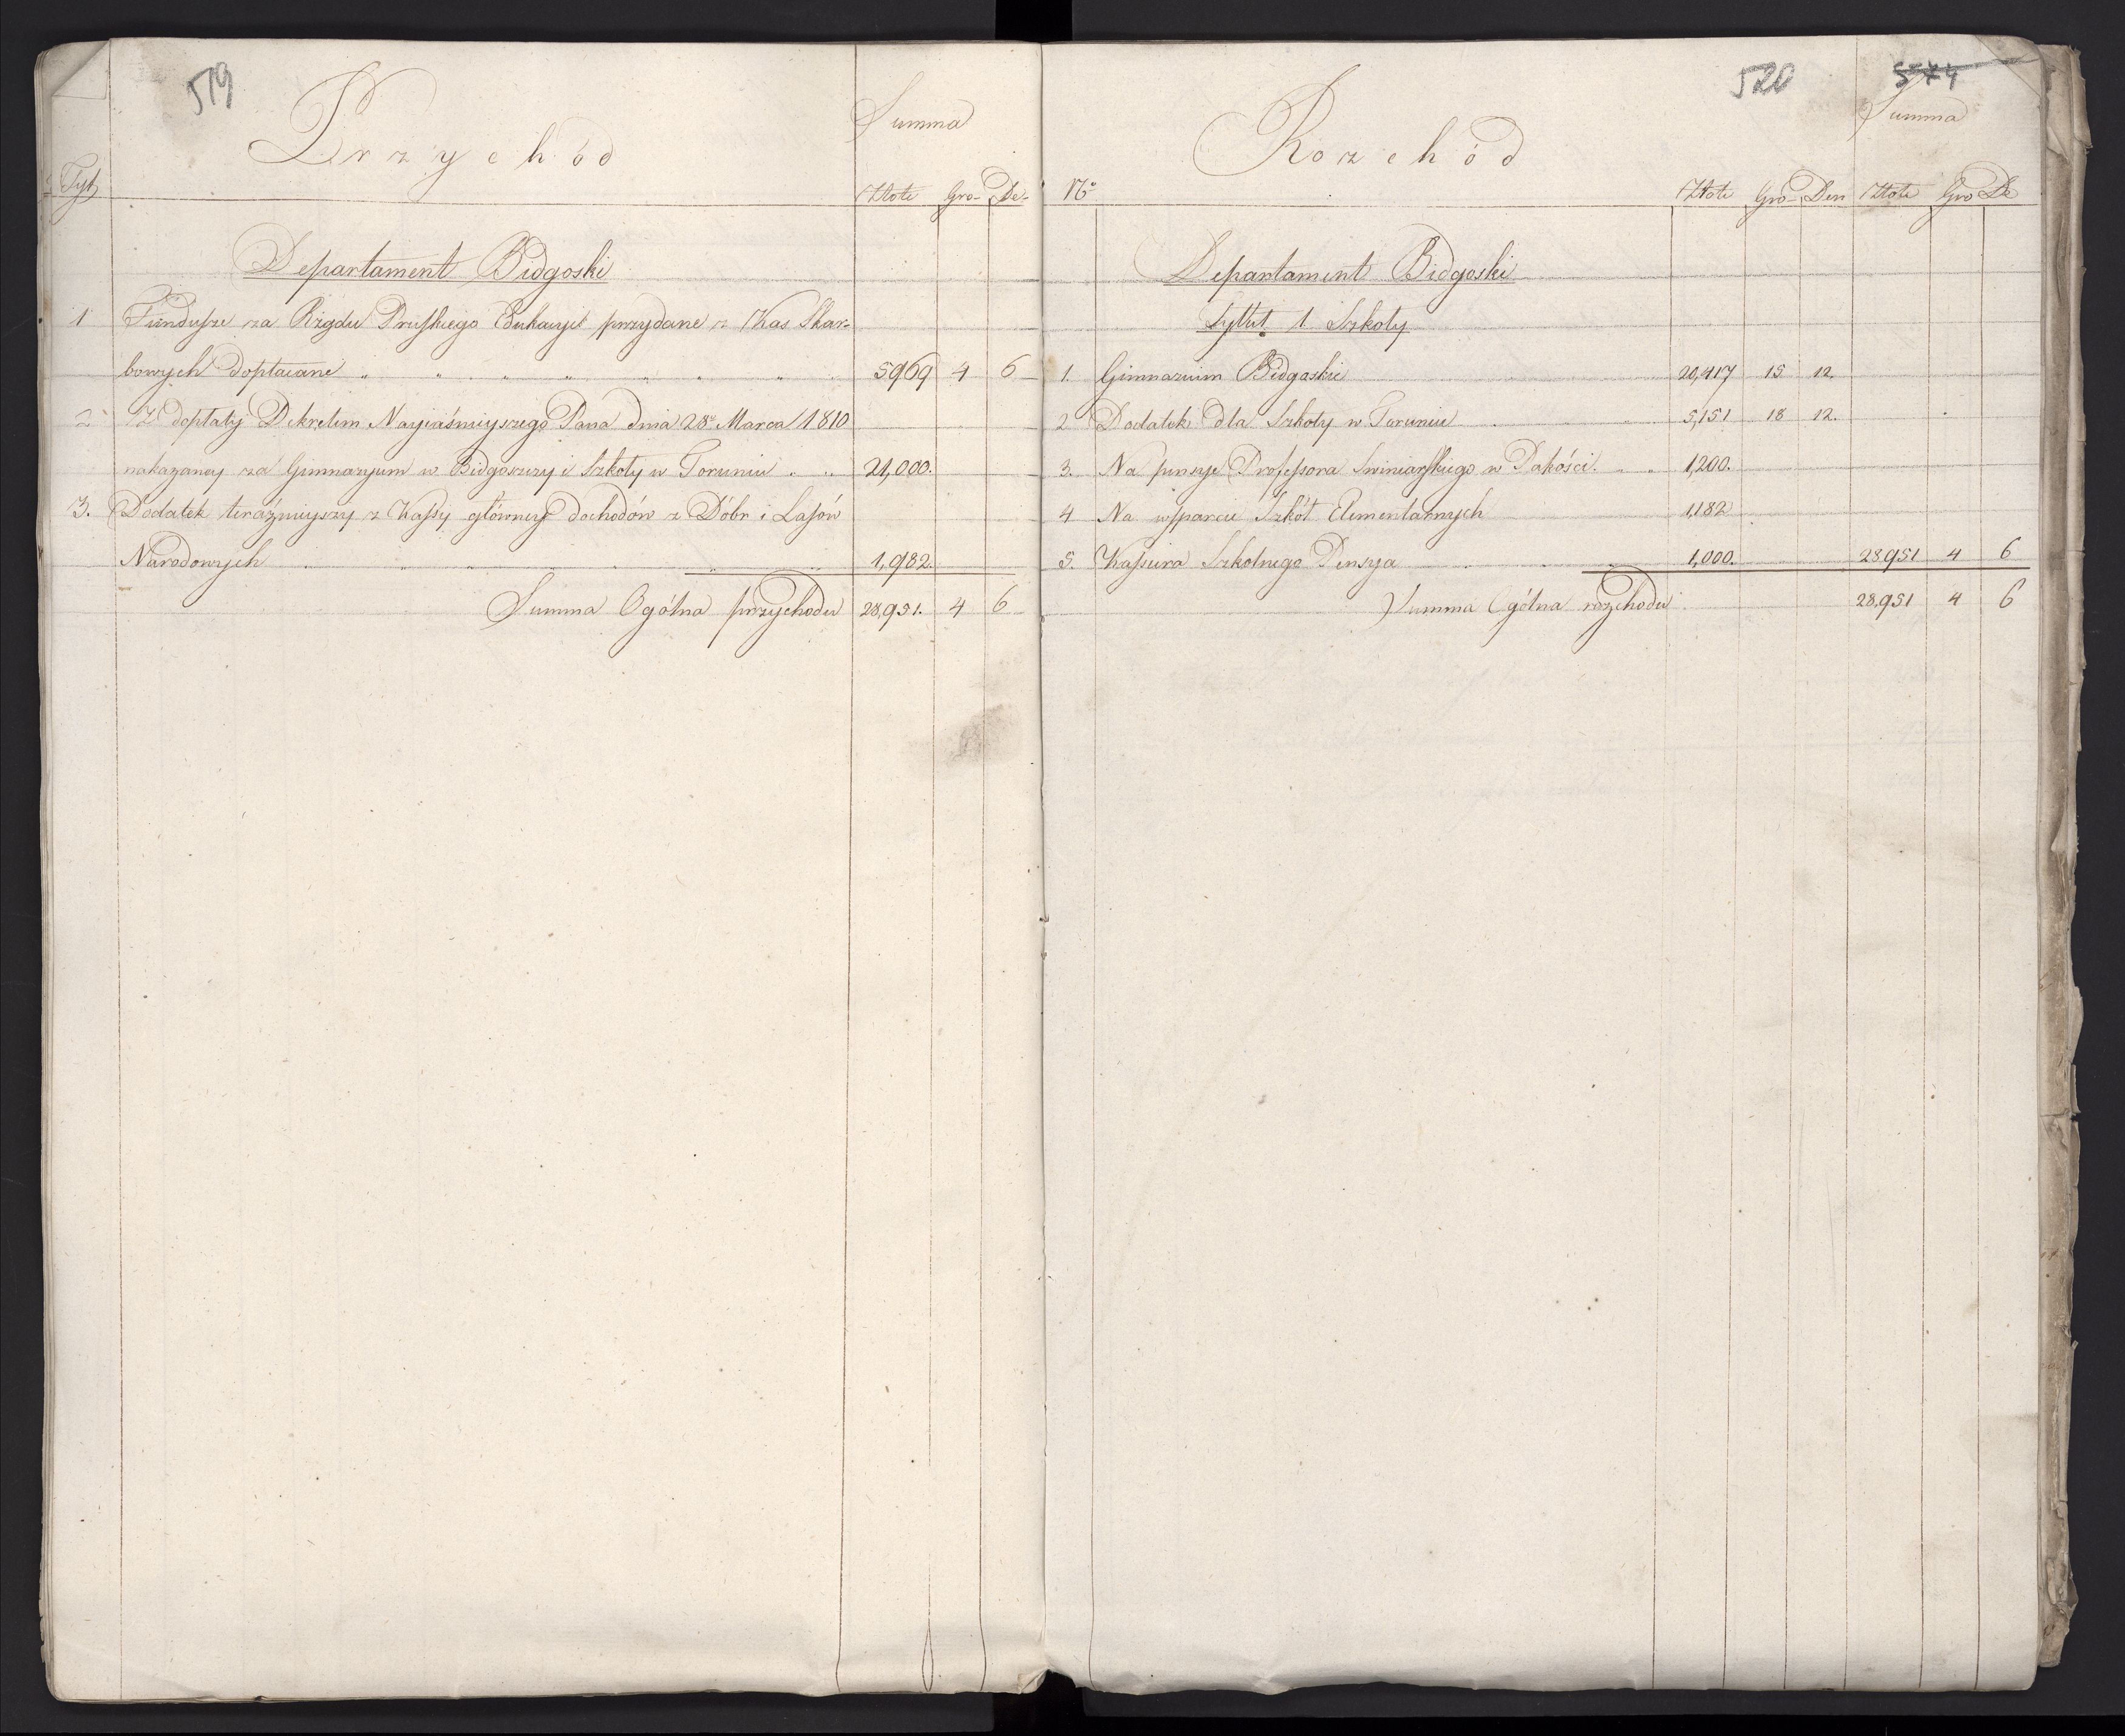 519
Przychód
Summa
Tyt
Złote Gro- De-
Departament Bidgoski
1 Fundusze za Rządu Pruskiego Edukacyi przydane z Kas Skar-
bowych dopłacane 5969 4 6
2 Z dopłaty Dekretem Nayiaśnieyszego Pana dnia 28º Marca 1810
nakazaney za Gimnazyum w Bidgoszczy i Szkoły w Toruniu 21,000.
3. Dodatek teraźnieyszy z Kassy główney dochodów z Dóbr i Lasów
Narodowych 1,982.
Summa Ogólna przychodu 28,951. 4 6
520
574
Rozchód
Summa
Nº
Złote Gro- Den Złote Gro De
Departament Bidgoski
Tytuł 1 Szkoły
1. Gimnazium Bidgoskie 20,417 15 12.
2 Dodatek dla Szkoły w Toruniu 5,151 18 12.
3. Na pensye Professora Swiniarskiego w Pakości. 1,200.
4 Na wsparcie Szkół Elementarnych 1,182
5. Kassiera Szkolnego Pensya 1,000. 28,951 4 6
Summa Ogólna rozchodu 28,951 4 6